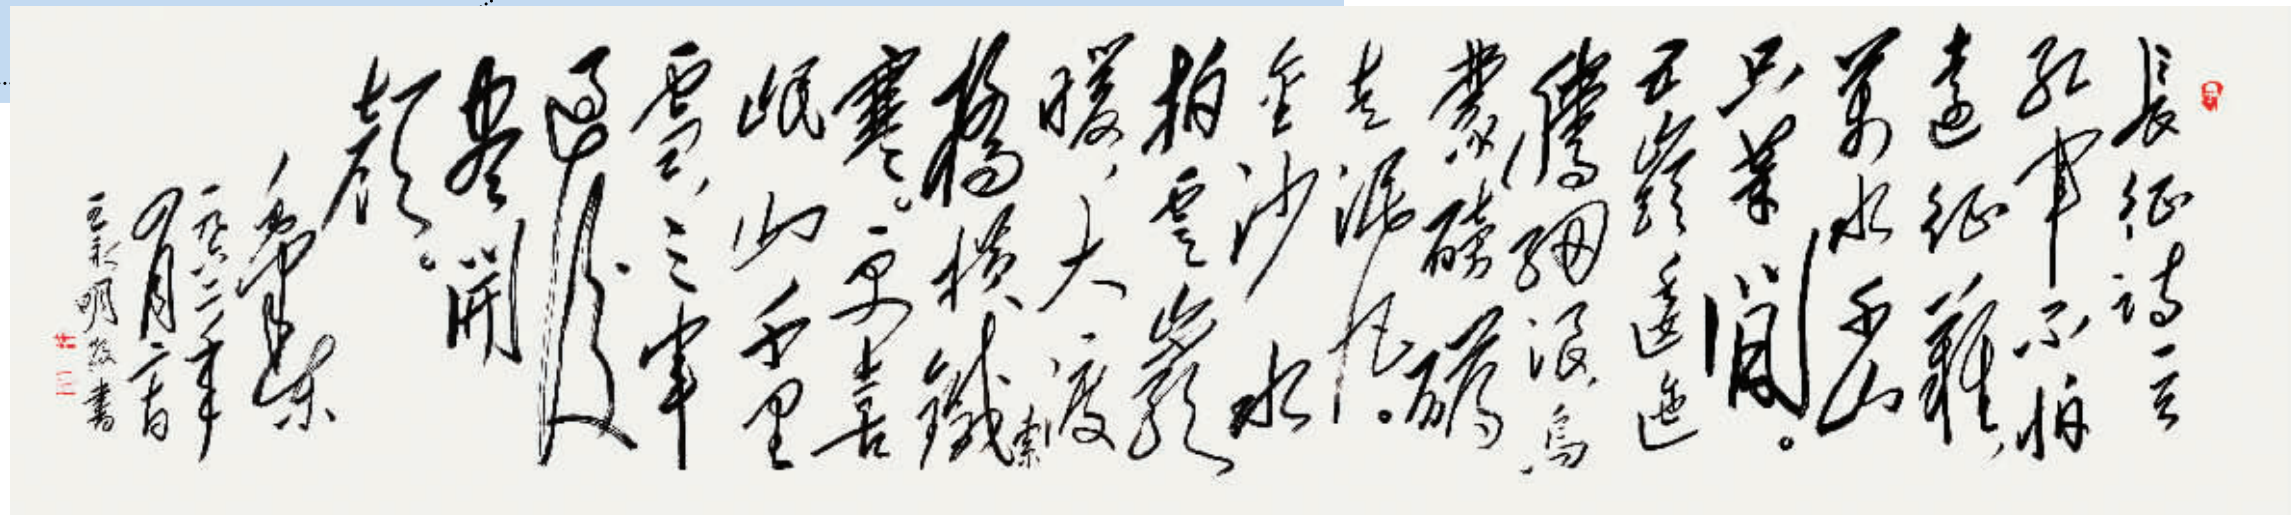 長征詩一首
紅軍不怕
遠征難,
萬水千山
只等閒。
五嶺逶迤
騰細浪,烏
蒙磅礴
走泥丸。
金沙水
拍雲巖
暖,大渡
橋橫鐵索
寒。更喜
岷山千里
雪,三軍
過後
盡開
顏。
毛澤東
一九六二年
四月二十日
明書